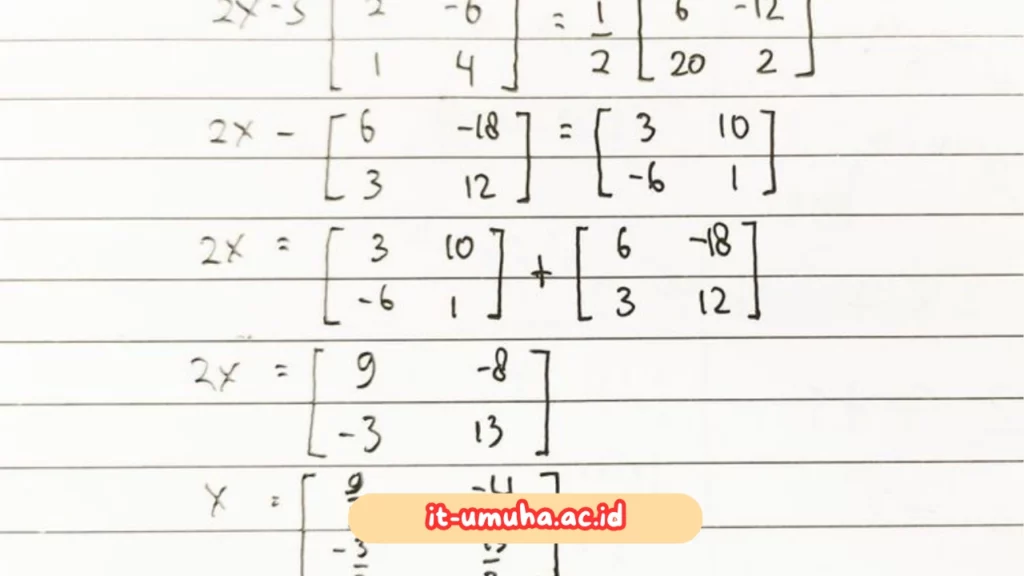 2X - 3 [ 2 -6 ] = 1/2 [ 6 -12 ]
[ 1 4 ] [ 20 2 ]
2X - [ 6 -18 ] = [ 3 10 ]
[ 3 12 ] [ -6 1 ]
2X = [ 3 10 ] + [ 6 -18 ]
[ -6 1 ] [ 3 12 ]
2X = [ 9 -8 ]
[ -3 13 ]
X = [ 9 -4 ]
it-umuha.ac.id
[ -3 ]